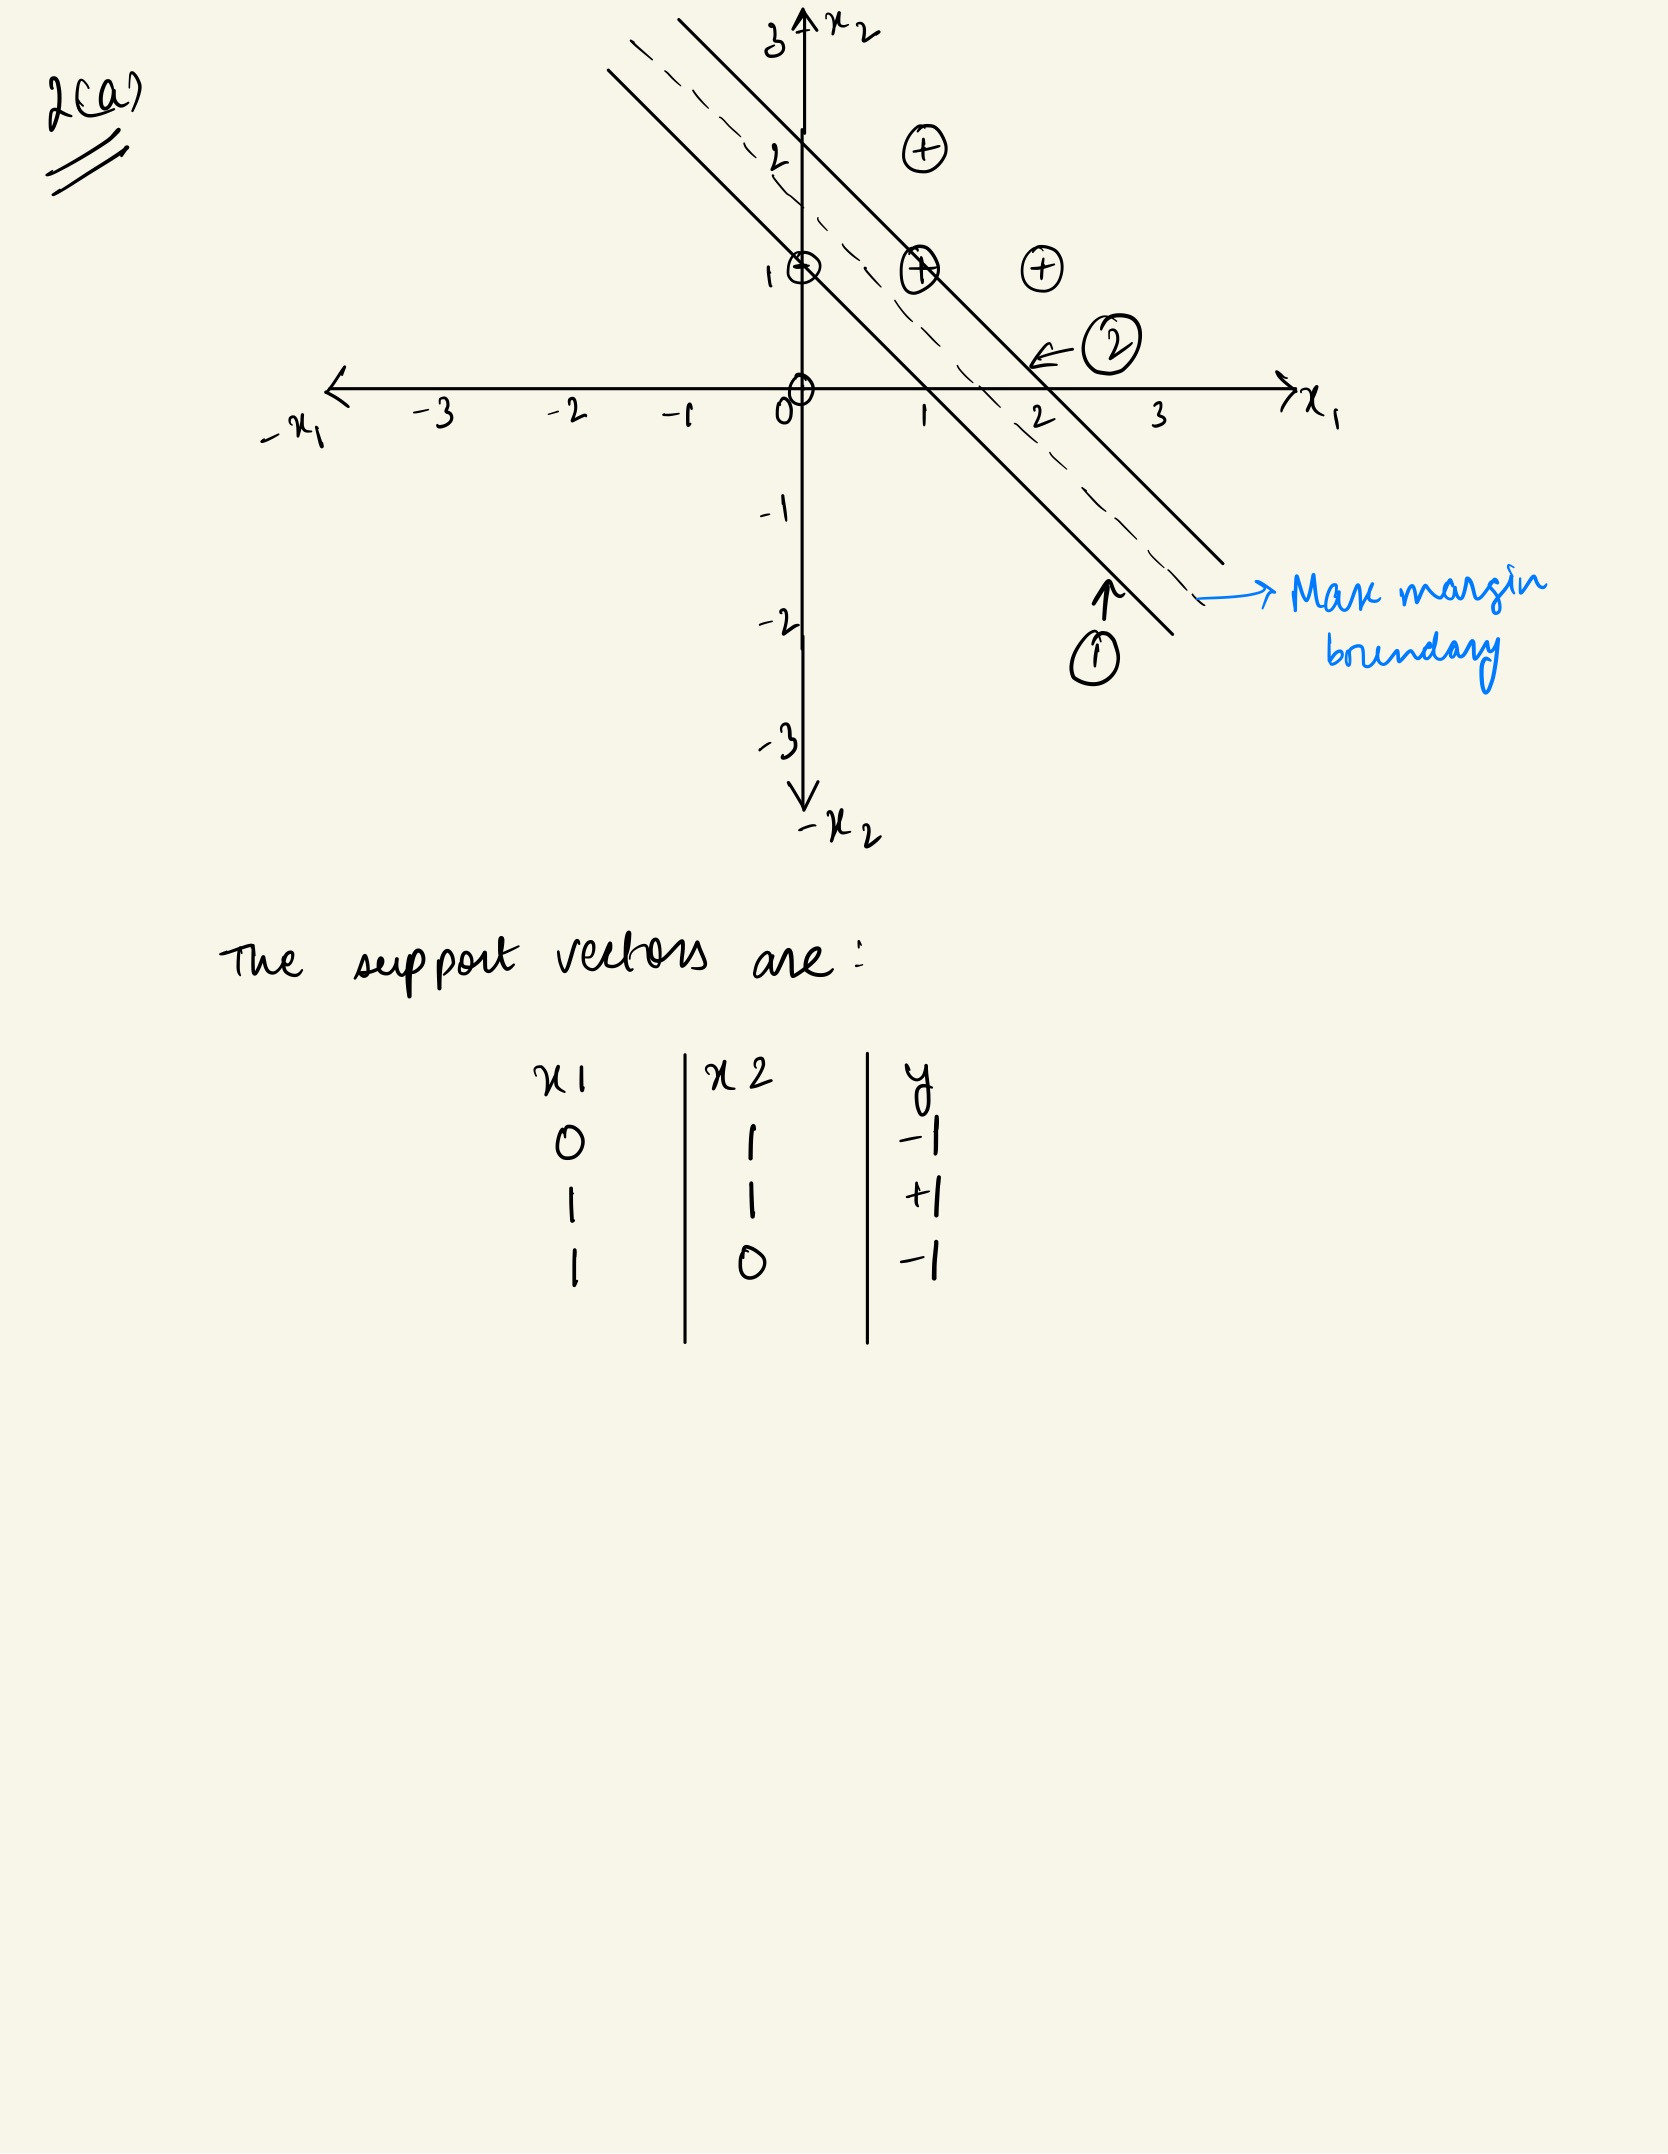 2(a)
3 x₂
+
2
1 − + +
2
-x₁ -3 -2 -1 0 1 2 3 x₁
-1
Max margin
-2 boundary
1
-3
-x₂
The support vectors are:
x1 x2 y
0 1 -1
1 1 +1
1 0 -1